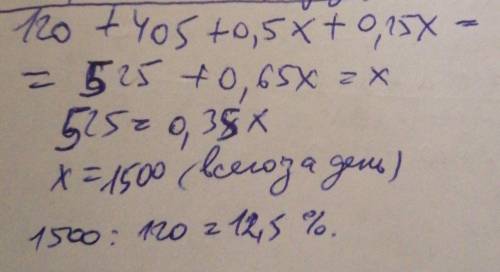 120 + 405 + 0,5x + 0,15x =
= 525 + 0,65x = x
525 = 0,35x
x = 1500 (всего за день)
1500 : 120 = 12,5 %.